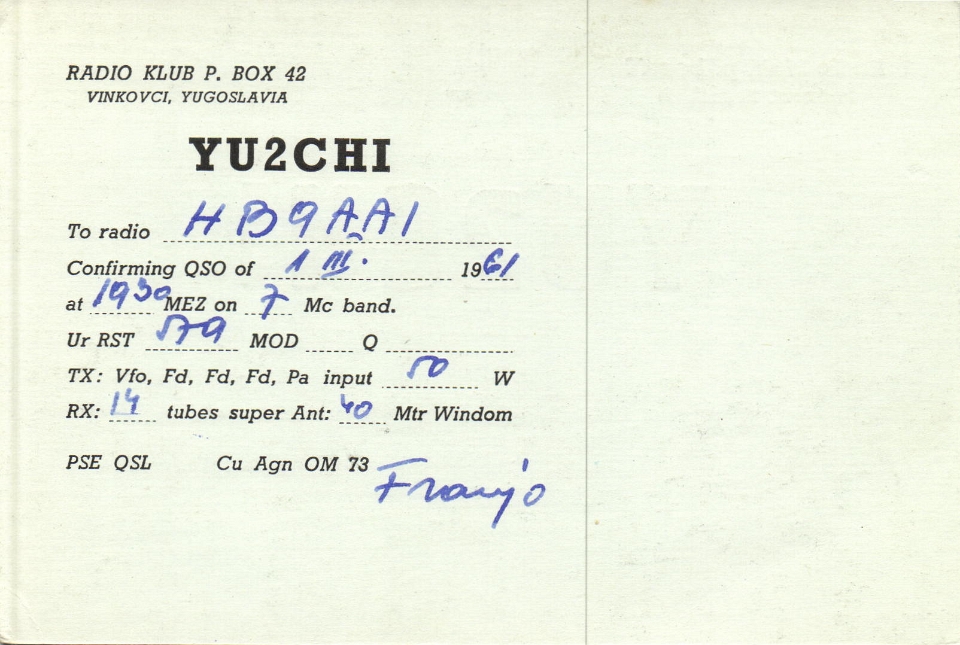 RADIO KLUB P. BOX 42
VINKOVCI, YUGOSLAVIA
YU2CHI
To radio HB9AAI
Confirming QSO of 1 III. 1961
at 1930 MEZ on 7 Mc band.
Ur RST 579 MOD Q
TX: Vfo, Fd, Fd, Fd, Pa input 50 W
RX: 14 tubes super Ant: 40 Mtr Windom
PSE QSL Cu Agn OM 73
Franjo